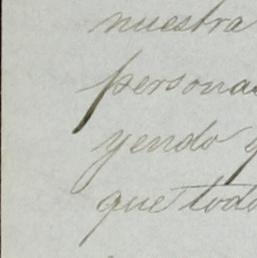 nuestra
persona
yendo
que todo